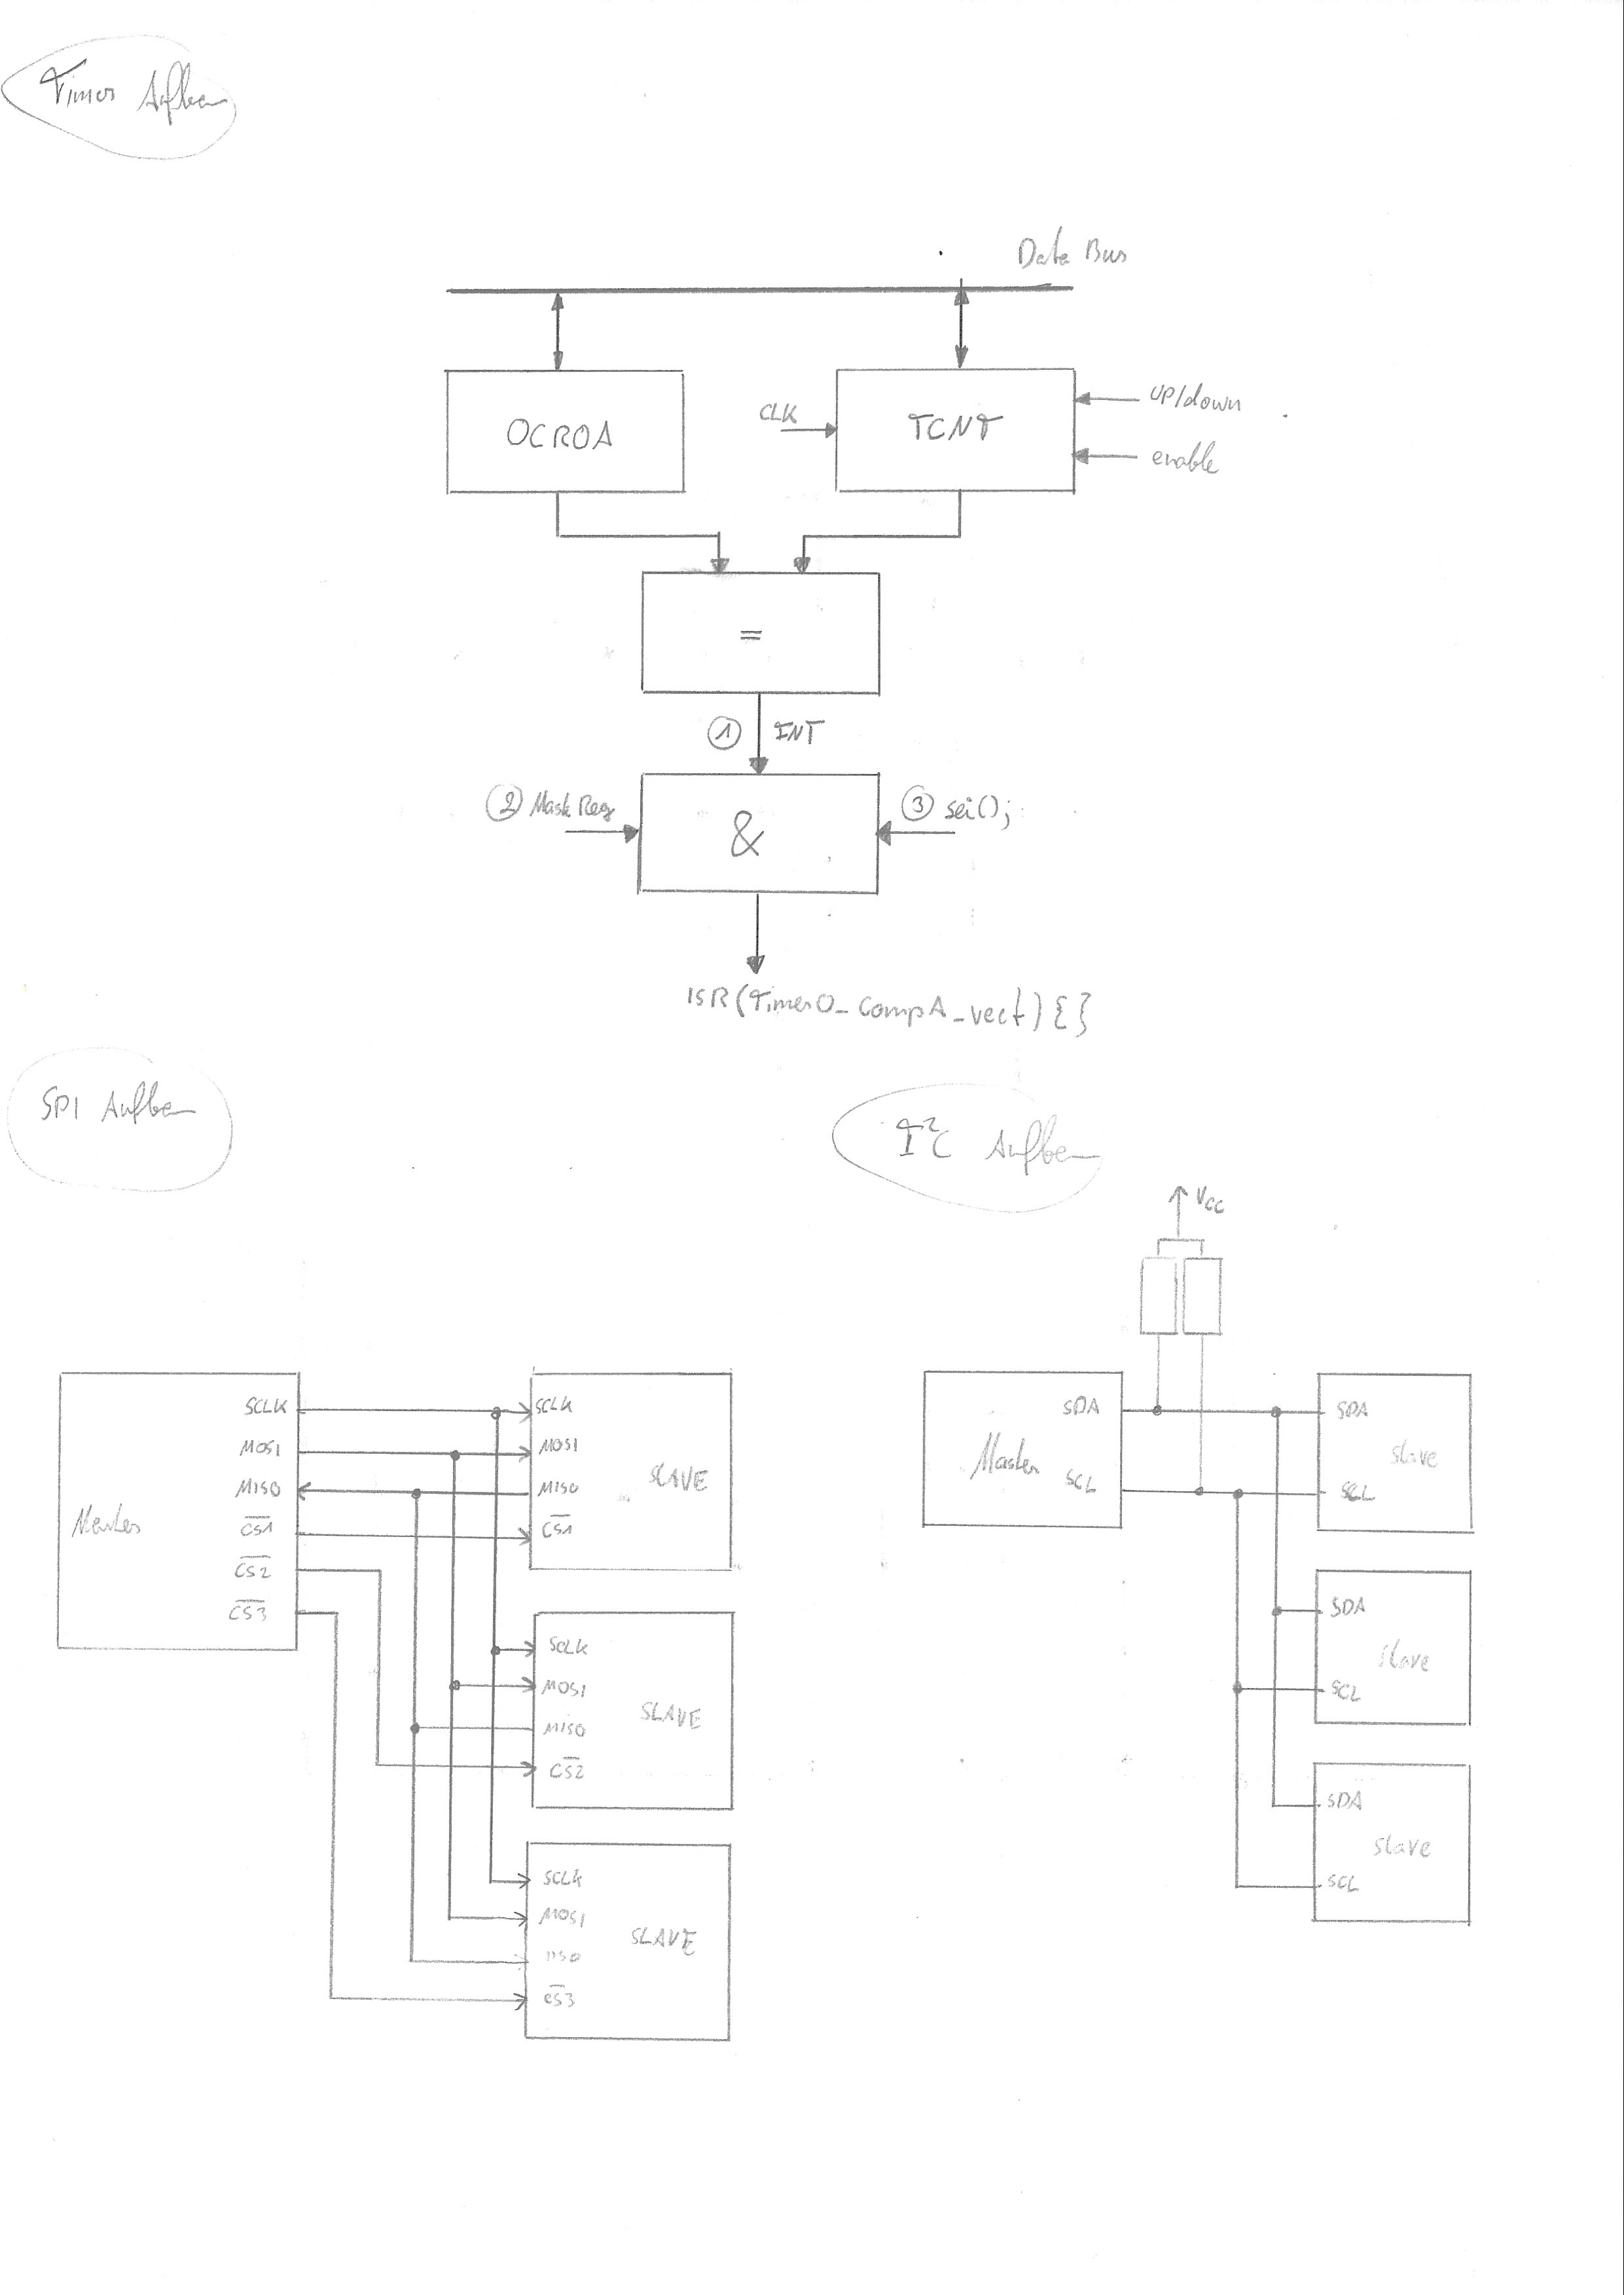 Timer Aufbau
Data Bus
OCR0A
CLK
TCNT
UP/down
enable
=
① INT
② Mask Reg
&
③ sei();
ISR(Timer0_CompA_vect){}
SPI Aufbau
I²C Aufbau
Vcc
Master
SCLK
MOSI
MISO
CS1
CS2
CS3
SCLK
MOSI
MISO
CS1
SLAVE
SCLK
MOSI
MISO
CS2
SLAVE
SCLK
MOSI
MISO
CS3
SLAVE
Master
SDA
SCL
SDA
SCL
Slave
SDA
SCL
Slave
SDA
SCL
Slave